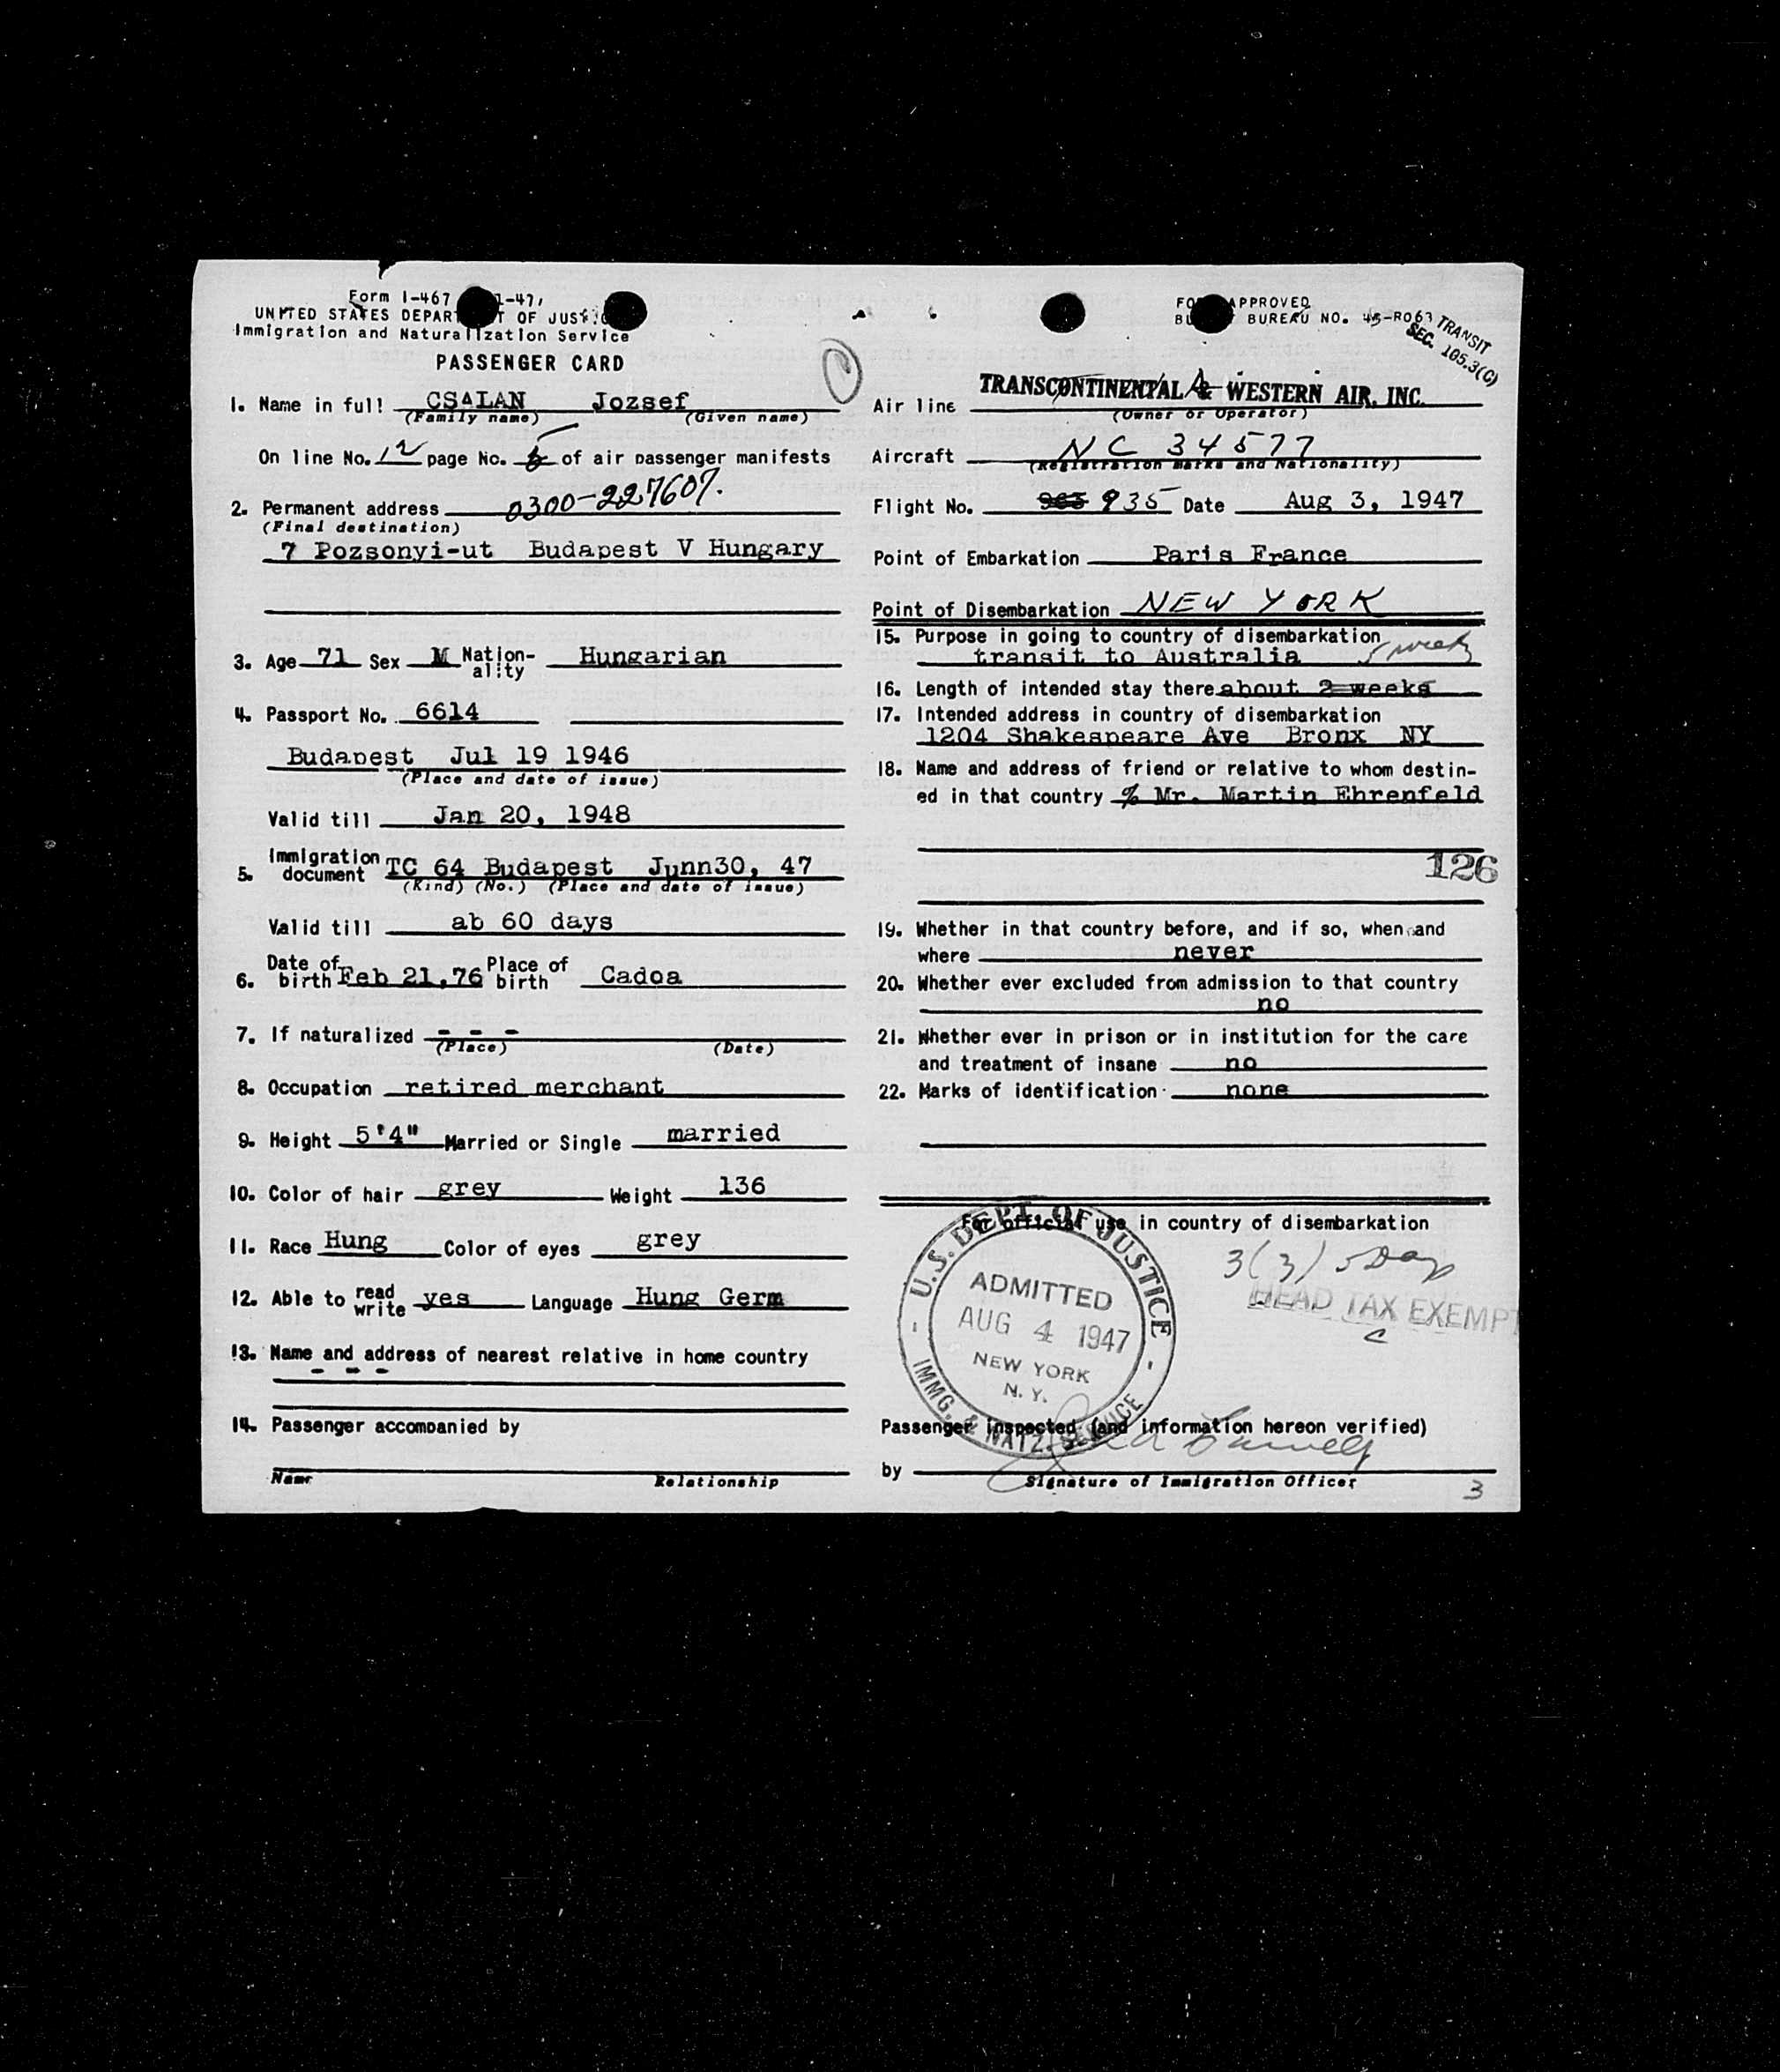 Form I-467
UNITED STATES DEPARTMENT OF JUSTICE
Immigration and Naturalization Service
PASSENGER CARD
1. Name in full CSALAN Jozsef
(Family name) (Given name)
On line No. 12 page No. 5 of air passenger manifests
2. Permanent address 0300-227607.
(Final destination)
7 Pozsonyi-ut Budapest V Hungary
3. Age 71 Sex M Nation-ality Hungarian
4. Passport No. 6614
Budapest Jul 19 1946
(Place and date of issue)
Valid till Jan 20, 1948
5. Immigration document TC 64 Budapest Junn30, 47
(Kind) (No.) (Place and date of issue)
Valid till ab 60 days
6. Date of birth Feb 21,76 Place of birth Cadoa
7. If naturalized - - -
(Place) (Date)
8. Occupation retired merchant
9. Height 5'4" Married or Single married
10. Color of hair grey Weight 136
11. Race Hung Color of eyes grey
12. Able to read write yes Language Hung Germ
13. Name and address of nearest relative in home country
- - -
14. Passenger accompanied by
Name Relationship
FORM APPROVED
BUDGET BUREAU NO. 45-R063
TRANSIT
SEC. 105.3(C)
Air line TRANSCONTINENTAL & WESTERN AIR, INC.
(Owner or Operator)
Aircraft NC 34577
(Registration marks and Nationality)
Flight No. 963 935 Date Aug 3, 1947
Point of Embarkation Paris France
Point of Disembarkation NEW YORK
15. Purpose in going to country of disembarkation
transit to Australia
16. Length of intended stay there about 2 weeks
17. Intended address in country of disembarkation
1204 Shakespeare Ave Bronx NY
18. Name and address of friend or relative to whom destin-
ed in that country % Mr. Martin Ehrenfeld
126
19. Whether in that country before, and if so, when and
where never
20. Whether ever excluded from admission to that country
no
21. Whether ever in prison or in institution for the care
and treatment of insane no
22. Marks of identification none
For official use in country of disembarkation
3(3) 5 Day
HEAD TAX EXEMPT
U.S. DEPT. OF JUSTICE
ADMITTED
AUG 4 1947
NEW YORK
N. Y.
IMMG. & NATZ. SERVICE
Passenger inspected (and information hereon verified)
by
Signature of Immigration Officer
3